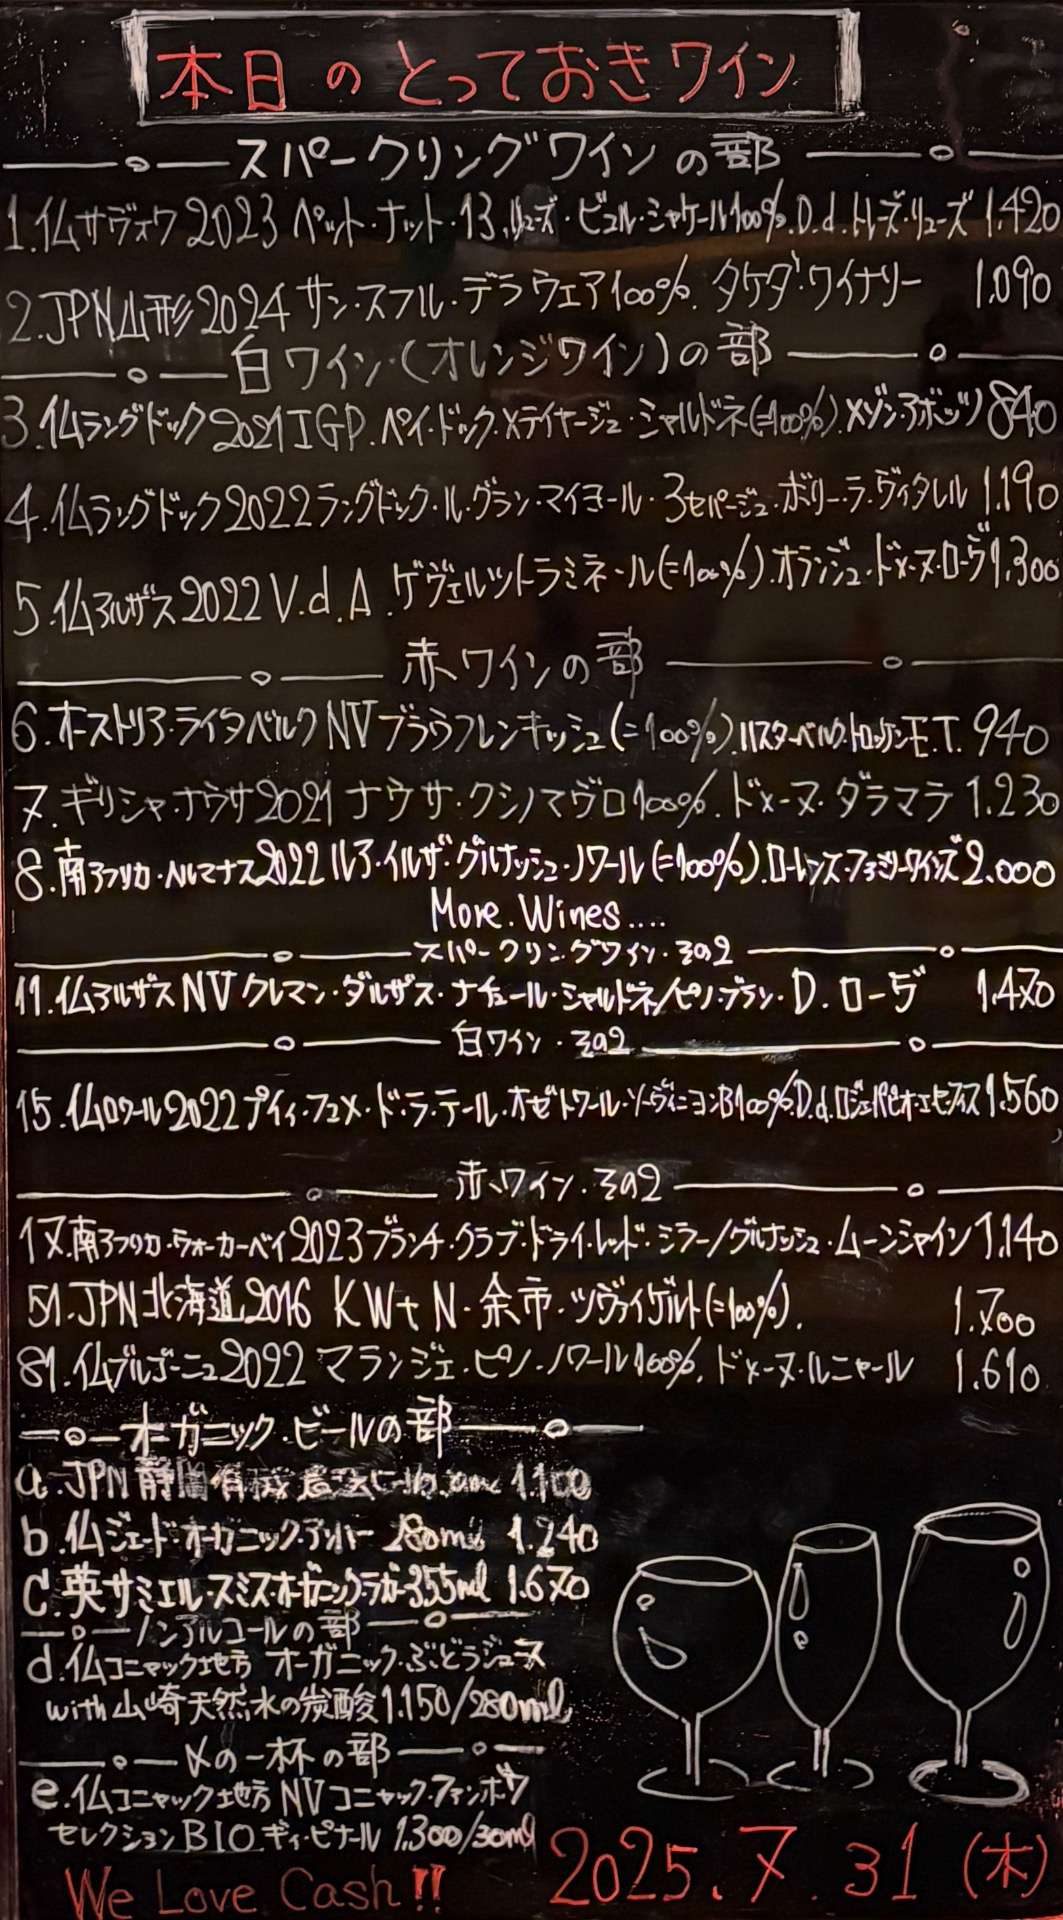 本日のとっておきワイン
スパークリングワインの部
1.仏サヴォワ2023 ペット・ナット・13.リューズ・ビュル・シャケール100%.D.d.トレーズ・リューズ 1.420
2.JPN山形2024 サン・スフル・デラウェア100%. タケダ・ワイナリー 1.090
白ワイン・(オレンジワイン)の部
3.仏ラングドック2021 IGP.ペイ・ドック.メティヤージュ・シャルドネ(=100%).メゾン・アボッツ 840
4.仏ラングドック2022ラングドック・ル・グラン・マイヨール・3セパージュ・ボリー・ラ・ヴィタレル 1.190
5.仏アルザス2022 V.d.A.ゲヴェルツトラミネール(=100%).オランジュ・ドメーヌ・ローヴ 1.300
赤ワインの部
6.オーストリア・ライタベルク NV ブラウフレンキッシュ(=100%).ハスターベルク.トロッケンE.T. 940
7.ギリシャ・ナウサ2021 ナウサ・クシノマヴロ100%.ドメーヌ・ダラマラ 1.230
8.南アフリカ・ヘルマナス2022 ルア・イルザ・グルナッシュ・ノワール(=100%).ローレンス・ファミリーワインズ 2.000
More.Wines....
スパークリングワイン・その2
11.仏アルザス NV クレマン・ダルザス・ナチュール・シャルドネ/ピノ・ブラン・D.ローヴ 1.470
白ワイン・その2
15.仏ロワール2022プイィ・フュメ・ド・ラ・テール・オゼトワール・ソーヴィニヨンB100%.D.d.ロジェ・パビオ・エ・セ・フィス 1.560
赤ワイン・その2
17.南アフリカ・ウォーカーベイ2023ブランチ・クラブ・ドライ・レッド・シラー/グルナッシュ・ムーンシャイン 1.140
51.JPN北海道2016 KWt N・余市・ツヴァイゲルト(=100%). 1.700
81.仏ブルゴーニュ2022 マランジェ・ピノ・ノワール100%.ドメーヌ・ルニャール 1.610
オーガニック・ビールの部
a.JPN静岡有 1.100
b.仏ジェード・オーガニック・アンバー 280ml 1.240
c.英サミエル・スミス・オーガニックラガー355ml 1.670
ノンアルコールの部
d.仏コニャック地方 オーガニック・ぶどうジュース
with山崎天然水の炭酸 1.150/280ml
〆の一杯の部
e.仏コニャック地方 NVコニャック・ファンボワ
セレクションBIO ギィ・ピナール 1.300/30ml
We Love Cash!!
2025.7.31(木)